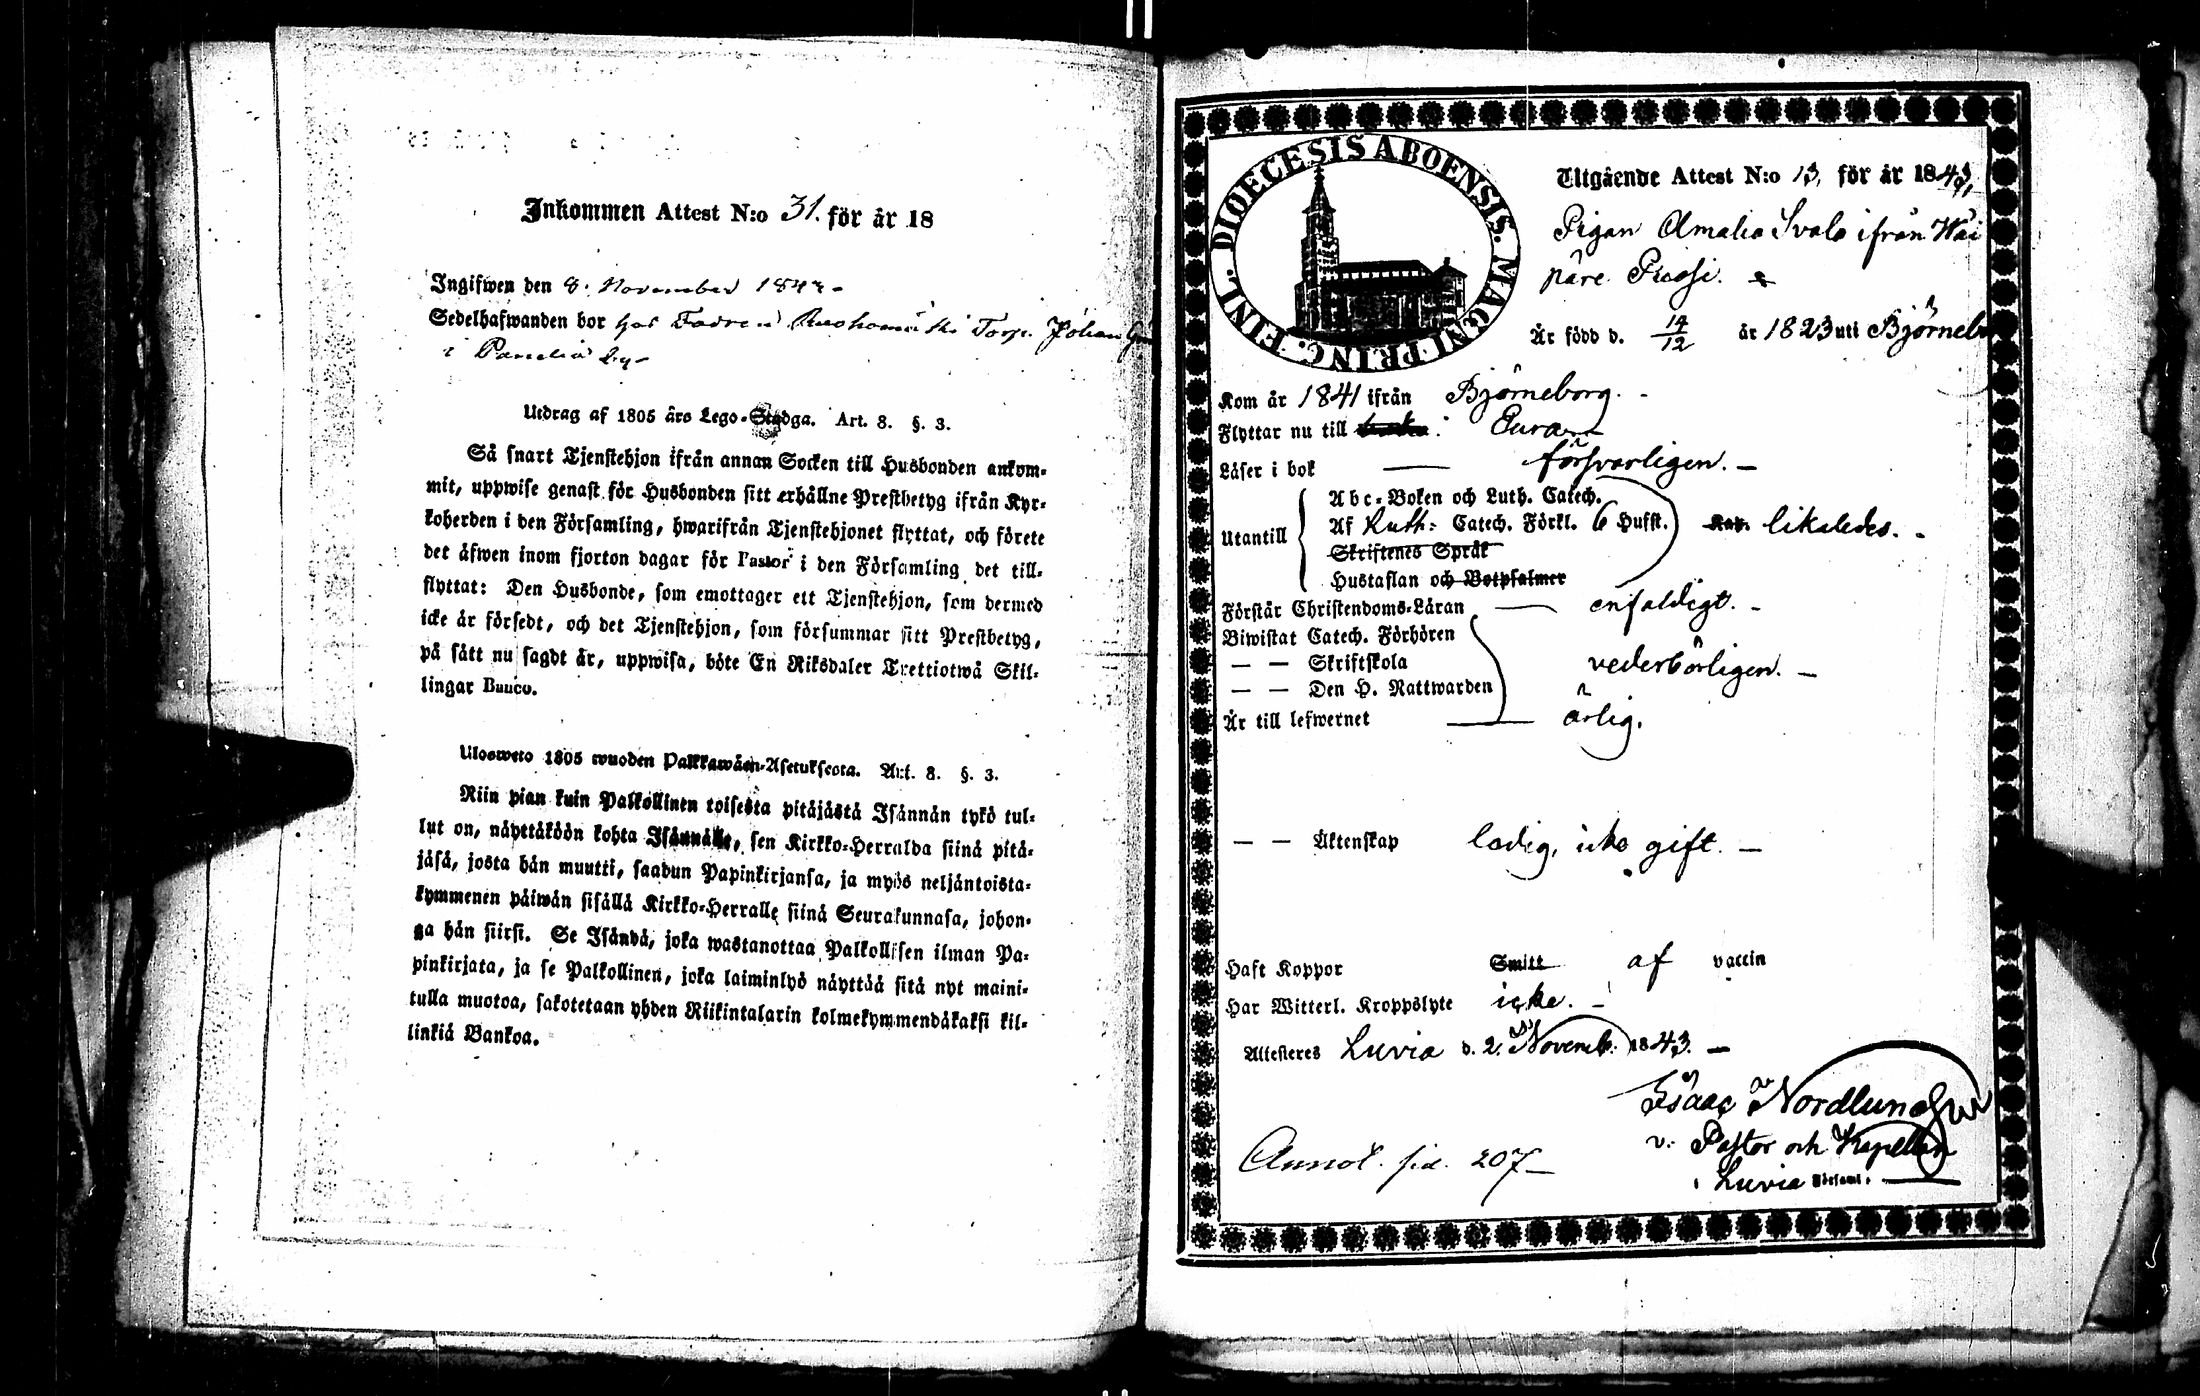 Inkommen Attest N:o 31. för år 18
Ingifwen den 8. November 1843 -
Sedelhafwanden bor hos Fadren Torp. Johan
i Panelia by -
Utdrag af 1805 års Lego-Stadga. Art. 8. §. 3.
Så snart Tjenstehjon ifrån annan Socken till Husbonden ankom-
mit, uppwise genast för Husbonden sitt erhållne Prestbetyg ifrån Kyr-
koherden i den Församling, hwarifrån Tjenstehjonet flyttat, och förete
det äfwen inom fjorton dagar för Pastor i den Församling det till-
flyttat: Den Husbonde, som emottager ett Tjenstehjon, som dermed
icke är försedt, och det Tjenstehjon, som försummar sitt Prestbetyg,
på sätt nu sagdt är, uppwisa, böte En Riksdaler Trettiotwå Skil-
lingar Banco.
Ulosweto 1805 wuoden Palkkawäen-Asetuksesta. Art. 8. §. 3.
Niin pian kuin Palkollinen toisesta pitäjästä Isännän tykö tul-
lut on, näyttäköön kohta Isännälle, sen Kirkko-Herralda siinä pitä-
jäsä, josta hän muutti, saadun Papinkirjansa, ja myös neljäntoista-
kymmenen päiwän sisällä Kirkko-Herralle siinä Seurakunnasa, johon-
ga hän siirsi. Se Isändä, joka wastanottaa Palkollisen ilman Pa-
pinkirjata, ja se Palkollinen, joka laiminlyö näyttää sitä nyt maini-
tulla muotoa, sakotetaan yhden Riikintalarin kolmekymmendäkaksi kil-
linkiä Bankoa.
DIOECESIS ABOENSIS. MAGNI PRINC. FINL.
Utgående Attest N:o 13, för år 1843,
Pigan Amalia Svala ifrån Wäi
päre
Är född d. 14/12 år 1823 uti Björneb
Kom år 1841 ifrån Björneborg. -
Flyttar nu till Eura -
Läser i bok — försvarligen. -
Utantill
Abc-Boken och Luth. Catech.
Af Luth: Catech. Förkl. 6 Hufst. Kap. likaledes. -
Skriftenes Språk
Hustaflan och Botpsalmer
Förstår Christendoms-Läran — enfaldigt. -
Biwistat Catech. Förhören
— — Skriftskola vederbörligen. -
— — Den H. Nattwarden
Är till lefwernet — ärlig.
— — Äktenskap ledig, icke gift. -
Haft Koppor Smitt af vaccin
Har Witterl. Kroppslyte icke. -
Attesteres Luvia d. 2. Novemb. 1843. -
Isaac Nordlund
v. Pastor och Kapellan
i Luvia Församl.
Annot. sid. 207 -